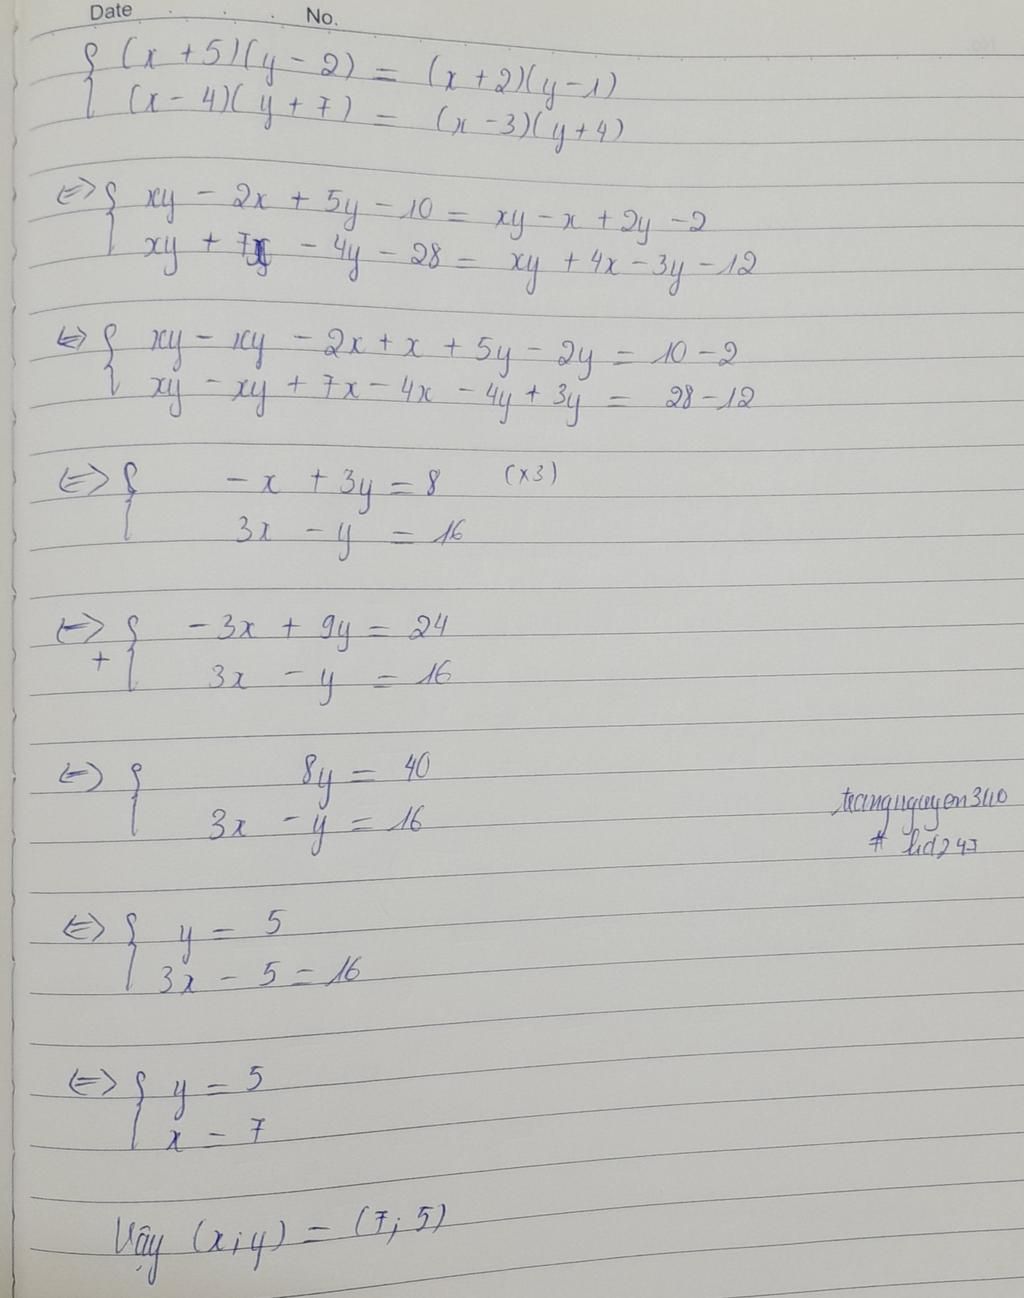 Date No.
{ (x + 5)(y - 2) = (x + 2)(y - 1)
(x - 4)(y + 7) = (x - 3)(y + 4)
⇔ { xy - 2x + 5y - 10 = xy - x + 2y - 2
xy + 7x - 4y - 28 = xy + 4x - 3y - 12
⇔ { xy - xy - 2x + x + 5y - 2y = 10 - 2
xy - xy + 7x - 4x - 4y + 3y = 28 - 12
⇔ { - x + 3y = 8 (x3)
3x - y = 16
⇔ { - 3x + 9y = 24
+ 3x - y = 16
⇔ { 8y = 40
3x - y = 16
⇔ { y = 5
3x - 5 = 16
⇔ { y = 5
x = 7
Vậy (x; y) = (7; 5)